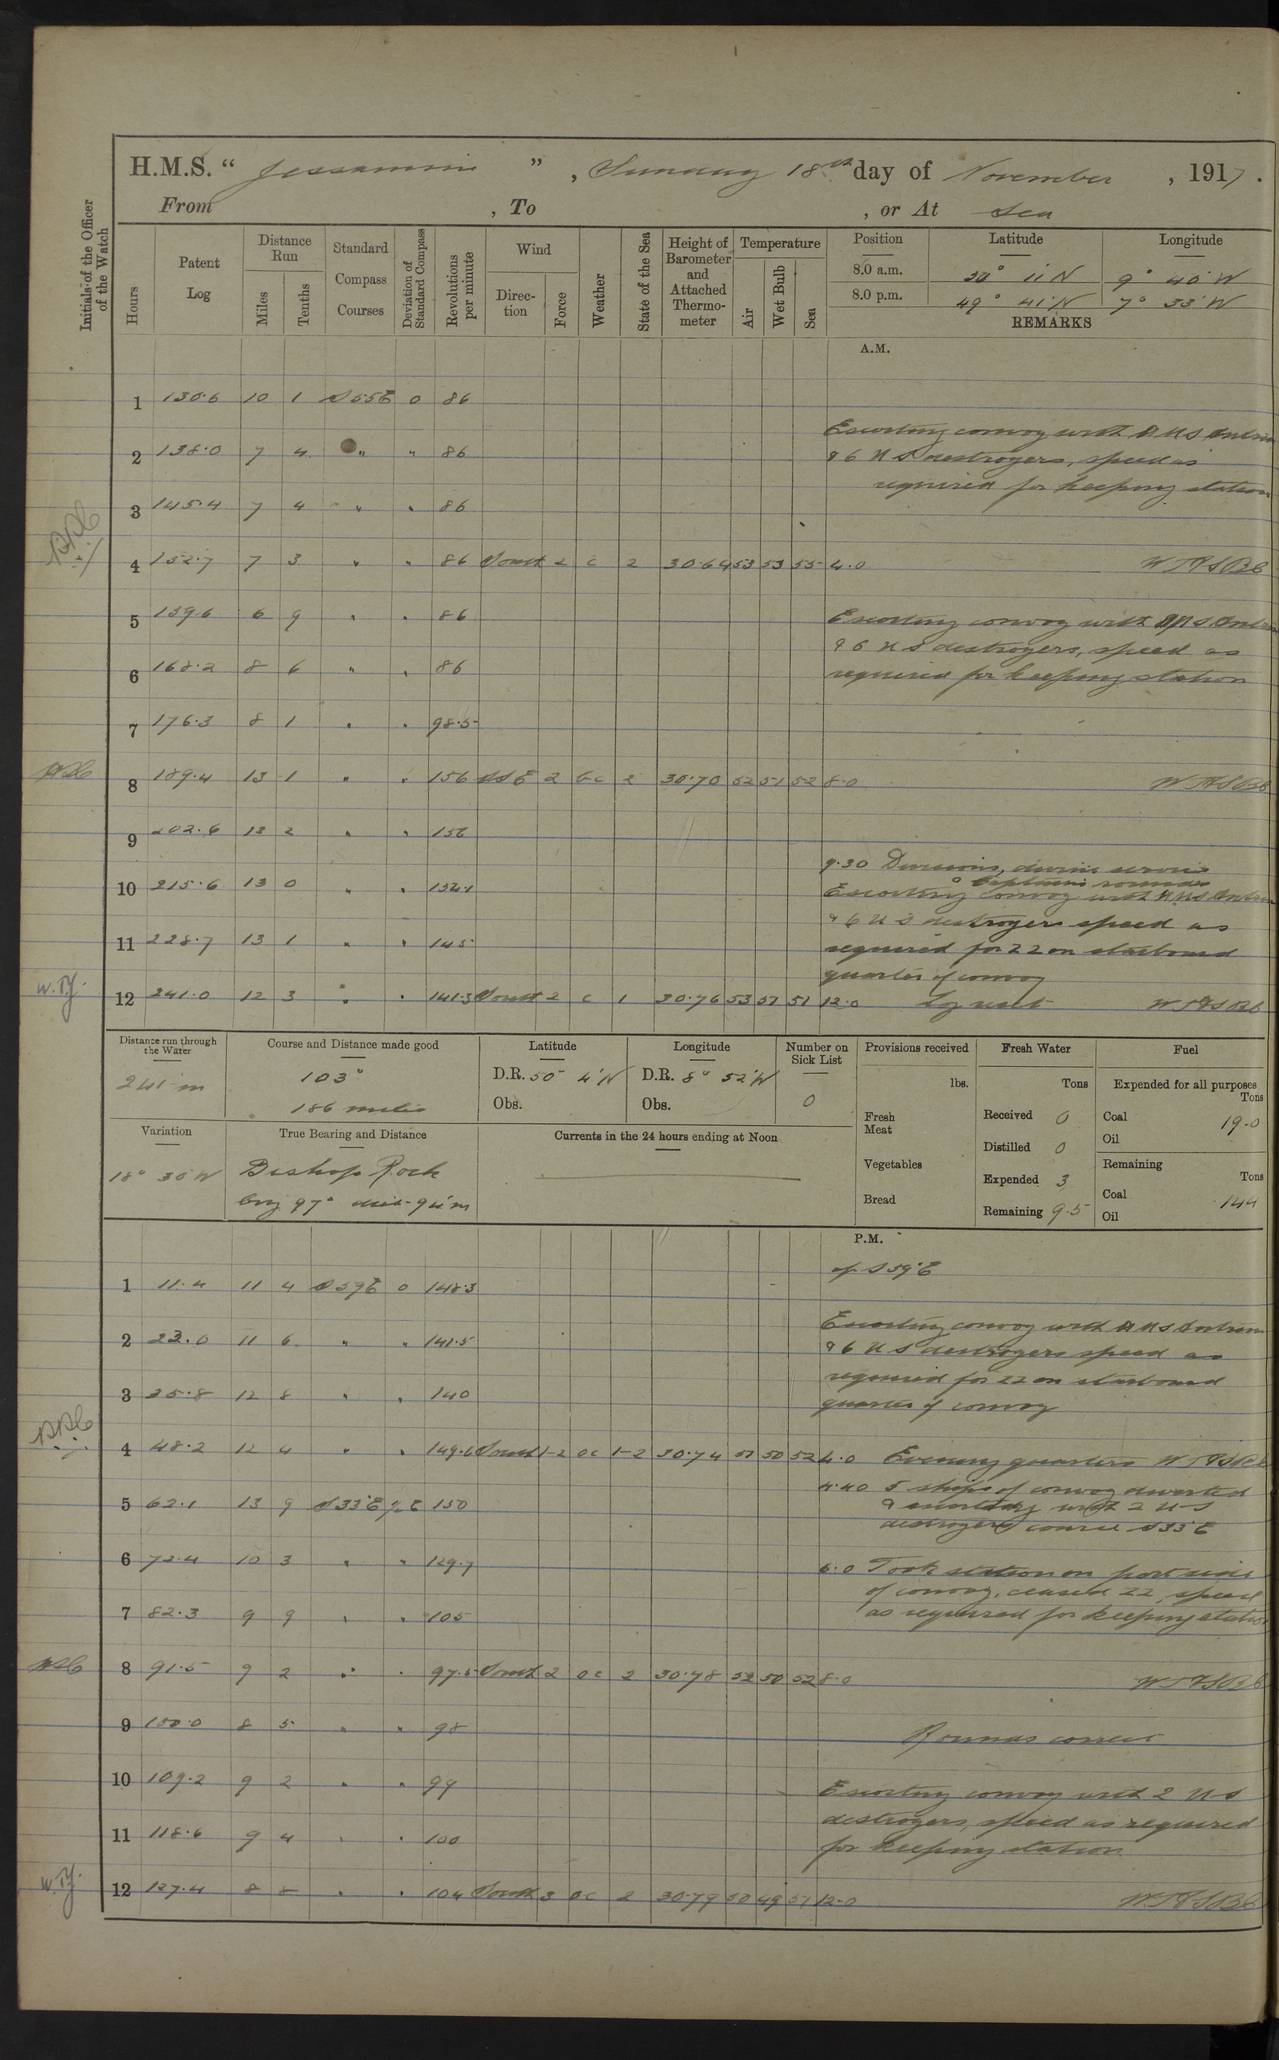 H.M.S. “ Jessamine ” , Sunday 18th day of November , 1917.
From , To , or At Sea
Initials of the Officer of the Watch
Hours Patent Log Distance Run Miles Tenths Standard Compass Courses Deviation of Standard Compass Revolutions per minute Wind Direction Force Weather State of the Sea Height of Barometer and Attached Thermometer Temperature Air Wet Bulb Sea Position Latitude Longitude
8.0 a.m. 11 N 9° 40' W
8.0 p.m. 49° 41' N 7° 33' W
REMARKS
A.M.
1 130.6 10 1 S55E 0 86
Escorting convoy with HMS Antrim
2 138.0 7 4 " " 86 & 6 US destroyers, speed as
required for keeping station
3 145.4 7 4 " " 86
4 152.7 7 3 " " 86 South 2 c 2 30.64 53 53 55 4.0
5 159.6 6 9 " " 86 Escorting convoy with HMS Antrim
& 6 US destroyers, speed as
6 168.2 8 6 " " 86 required for keeping station
7 176.3 8 1 " " 98.5
8 189.4 13 1 " " 156 SSE 2 bc 2 30.70 52 51 52 8.0
9 202.6 13 2 " " 156
9.30 Divisions, divine service
& Captains rounds
10 215.6 13 0 " " Escorting convoy with HMS Antrim
& 6 US destroyers speed as
11 228.7 13 1 " " 145 required for ZZ on starboard
quarter of convoy
W.T.J. 12 241.0 12 3 " " 141.3 South 2 c 1 30.76 53 51 12.0 Log reset
Distance run through the Water Course and Distance made good Latitude Longitude Number on Sick List Provisions received Fresh Water Fuel
241 m 103° D.R. 50° 4' N D.R. 8° 52' W lbs. Tons Expended for all purposes Tons
186 miles Obs. Obs. 0 Fresh Meat Received 0 Coal 19.0
Variation True Bearing and Distance Currents in the 24 hours ending at Noon Distilled 0 Oil
18° 30' W Bishop Rock Vegetables Expended 3 Remaining Tons
brg 97° dist 94 m Bread Remaining 95 Coal 144
Oil
P.M.
a/c S59°E
1 11.4 11 4 S59E 0 148.3
Escorting convoy with HMS Antrim
2 23.0 11 6 " " 141.5 & 6 US destroyers speed as
required for ZZ on starboard
3 35.8 12 8 " " 140 quarter of convoy
4 48.2 12 4 " " 149.6 South 1-2 oc 1-2 30.74 51 50 52 4.0 Evening quarters
4.40 5 ships of convoy diverted
5 62.1 13 9 S33°E 150 & escorting with 2 US
destroyers course S33°E
6 72.4 10 3 " " 129.7 6.0 Took station on port side
of convoy, ceased ZZ, speed
7 82.3 9 9 " " 105 as required for keeping station
8 91.5 9 2 " " 97.5 South 2 oc 2 30.78 52 50 52 8.0
9 100.0 8 5 " " 98 Rounds correct
10 109.2 9 2 " " 99 Escorting convoy with 2 US
destroyers, speed as required
11 118.6 9 4 " " 100 for keeping station
W.T.J. 12 127.4 8 8 " " 104 South 3 oc 2 30.79 50 49 51 12.0